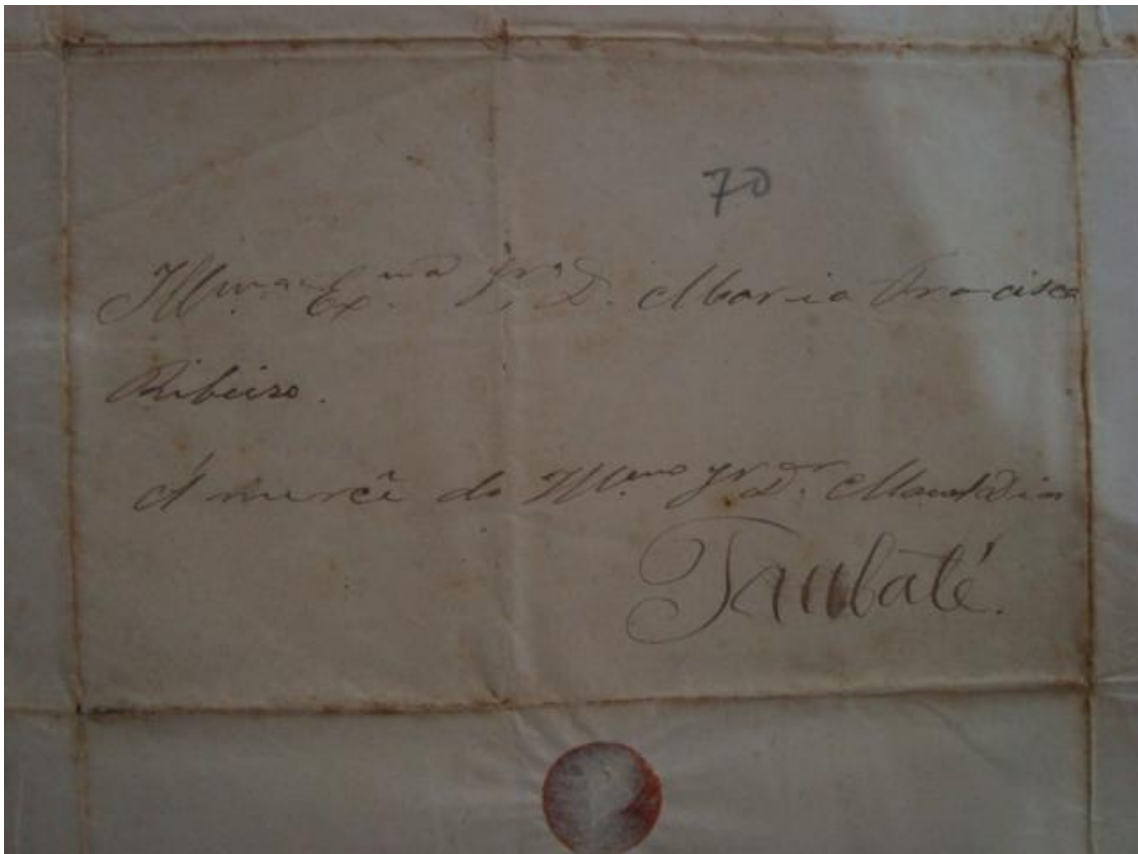 70
Illma. e Exma. Sra. D. Maria Fracisca
Ribeiro.
Á mercê do Illmo Sr Dr.
Taubaté.